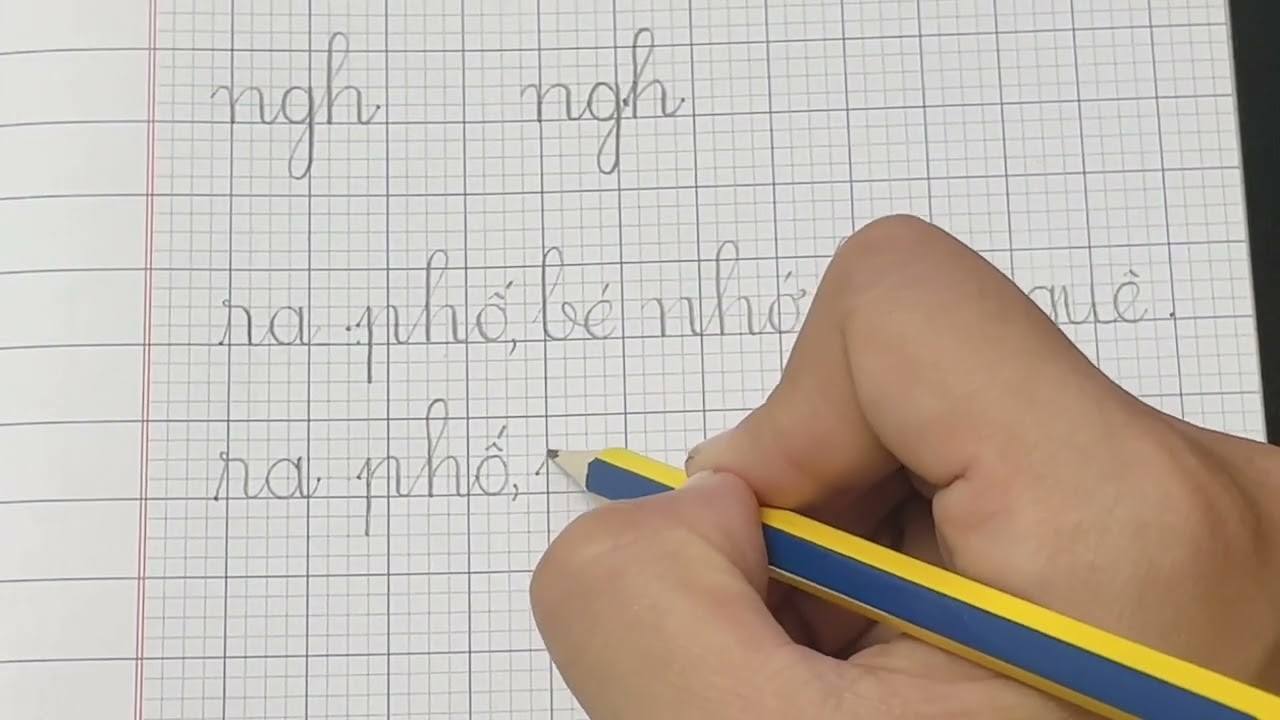 ngh ngh
ra phố, bé nhớ quê.
ra phố,